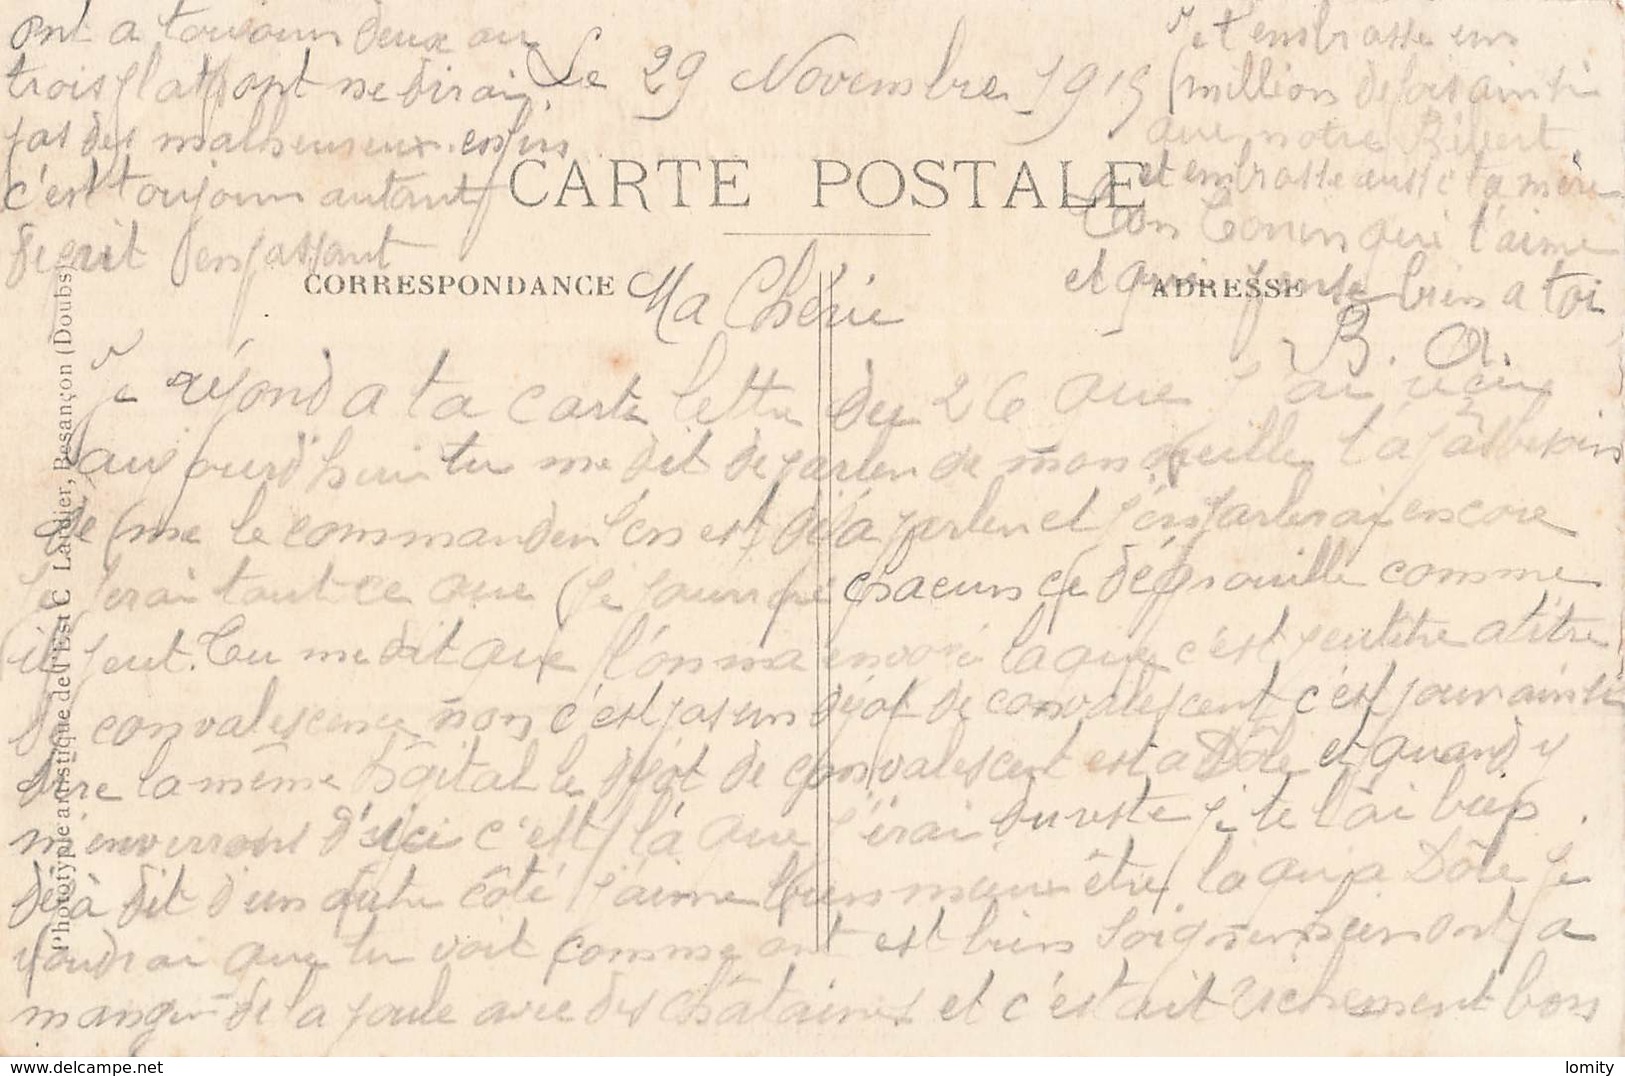 Le 29 Novembre 1915
CARTE POSTALE
CORRESPONDANCE
ADRESSE
Ma Chérie
Je répond a ta carte lettre du 26 que j'ai reçu
aujourd'hui tu me dit de parler de mon oreille t'a pas besoin
de me le commander j'en est déjà parler et j'en parlerai encore
Je ferai tout ce que je pourré chacun ce dégrouille comme
il peut. Tu me dit que l'on ma envoié la que c'est peutetre a titre
de convalescence non c'est pas un dépot de convalescent c'est pour ainsi
dire la même hôpital le dépot de convalescent est a Dôle et quand y
m'enverrons d'ici c'est là que j'irai du reste je te l'ai
déjà dit d'un autre côté j'aime bien mieux être la qu'a Dôle Je
voudrai que tu voit comme ont est bien soigner hier ont a
manger de la poule avec des châtaines et c'était richement bon
ont a toujours deux ou
trois plat ont ne dirai
pas des malheureux enfin
c'est toujours autant
de prit en passant
Je t'embrasse un
million de fois ainsi
que notre Bébert
et embrasse aussi ta mère
Ton Tonin qui t'aime
et qui pense bien a toi
B. A.
Phototypie artistique de l'Est C. Lardier, Besançon (Doubs)
lomity